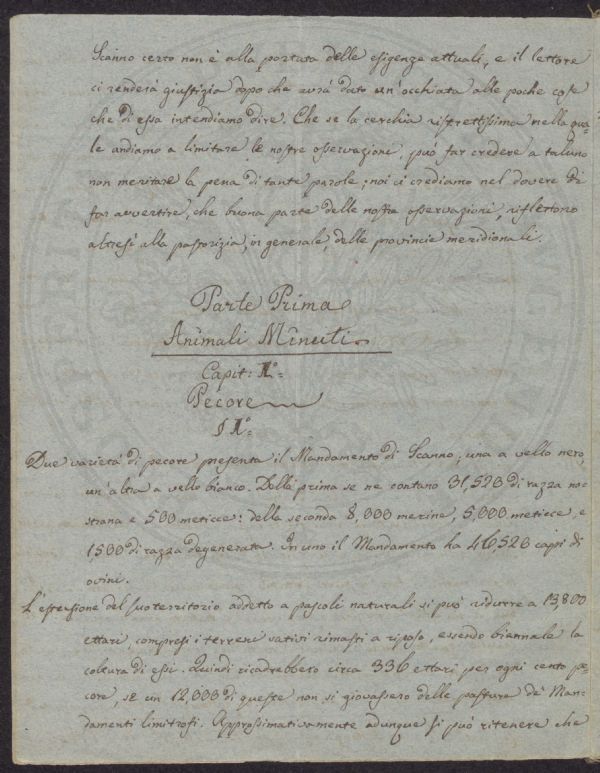 Scanno certo non è alla portata delle esigenze attuali, e il lettore
ci renderà giustizia dopo che avrà dato un'occhiata alle poche cose
che di essa intendiamo dire. Che se la cerchia ristrettissima nella qua-
le andiamo a limitare le nostre osservazione, può far credere a taluno
non meritare la pena di tante parole; noi ci crediamo nel dovere di
far avvertire, che buona parte delle nostre osservazioni, riflettono
altresì alla pastorizia, in generale, delle provincie meridionali.
Parte Prima
Animali Minuti
Capit: 1º=
Pecore
§ 1º=
Due varietà di pecore presenta il Mandamento di Scanno; una a vello nero,
un'altra a vello bianco. Della prima se ne contano 31,520 di razza no-
strana e 500 meticce: della seconda 8,000 merine, 5,000 meticce, e
1500 di razza degenerata. In uno il Mandamento ha 46,520 cappi di
ovini.
L'estensione del suo territorio addetto a pascoli naturali si può ridurre a 13,800
ettari, compresi i terreni sativi rimasti a riposo, essendo biennale la
coltura di essi. Quindi ricadrebbero circa 336 ettari per ogni cento pe-
core, se un 12,000 di queste non si giovassero delle pasture de' Man-
damenti limitrofi. Approssimativamente adunque si può ritenere che